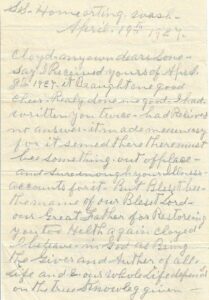 April 19th 1927.
Cloyd - my own dear Son -
Say I Received yours of Apr.
8th 1927. it Braught me good
cheer Realy done me good. I had
written you twice - had Received
no answer - it made me uneasy
for it semed there there must
bee something out of place -
and Sure enough your illness
accounts for it. But Blest bee
the name of our Blest Lord -
our Great Father for Restoring
you too Health again Cloyd
I Beleave in God as Being
the Giver and Auther of all
Life and our whole life depends
on the true Knowledg given -